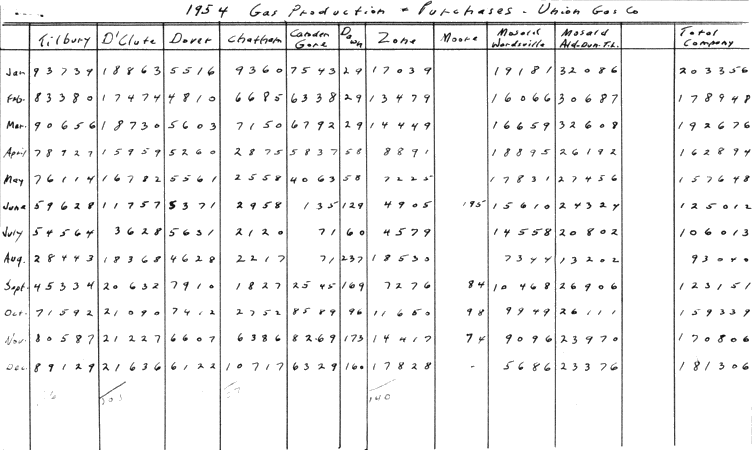 1954 Gas Production & Purchases - Union Gas Co
Tilbury D'Clute Dover Chatham Camden Gore Dawn Zone Moore Mosard Wardsville Mosard Ald-Dun-T.L. Total Company
Jan 93734 18863 5516 9360 7543 29 17039 19181 32086 203356
Feb. 83380 17474 4810 6685 6338 29 13479 16066 30687 178948
Mar. 90656 18730 5603 7150 6792 29 14449 16659 32608 192676
April 78927 15959 5260 2875 5837 58 8891 18895 26192 162894
May 76114 16782 5561 2558 4063 58 7225 17831 27456 157648
June 59628 11757 5371 2958 135 129 4905 195 15610 24324 125012
July 54564 3628 5631 2120 71 60 4579 14558 20802 106013
Aug. 28443 18368 4628 2217 71 237 18530 7344 13202 93040
Sept. 45334 20632 7910 1827 2545 169 7276 84 10468 26906 123151
Oct. 71592 21090 7412 2752 8589 96 11650 98 9949 26111 159339
Nov. 80587 21227 6607 6386 8269 173 14417 74 9096 23970 170806
Dec. 89129 21636 6122 10717 6329 160 17828 - 5686 23376 181306
140